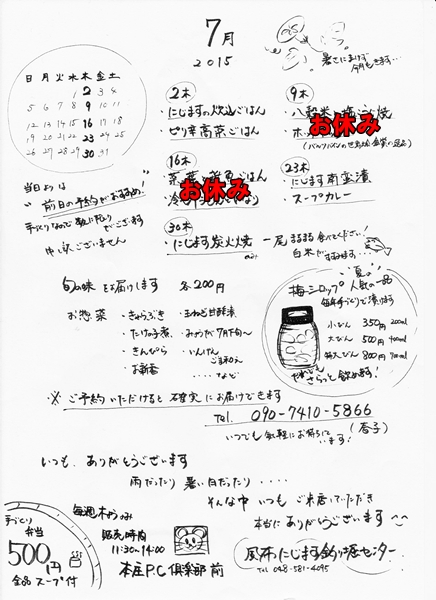 7月
2015
暑さにまけず
今月もがんばります…
日 月 火 水 木 金 土
1 2 3 4
5 6 7 8 9 10 11
12 13 14 15 16 17 18
19 20 21 22 23 24 25
26 27 28 29 30 31
2木
・にじますの炊込ごはん
・ピリ辛高菜ごはん
9木
お休み
16木
お休み
23木
・にじます南蛮漬
・スープカレー
30木
・にじます炭火焼 一尾まるまる食べてください!
当日よりは
"前日の予約がおすすめ!
手づくりなので数に限りがございます
申し訳ございません
旬の味をお届けします 各200円
お惣菜
・きゃらぶき
・たけのこ煮
・きんぴら
・お新香
・玉ねぎ甘酢漬
・みょうが7月下旬~
・いんげん
ごま和え
・・・・など
夏の
梅シロップ 人気の一品
毎年手づくりで漬けます
小びん 350円 200ml
大びん 500円 400ml
特大びん 800円 700ml
さらっと飲める!
※ご予約いただけると確実にお届けできます
Tel. 090-7410-5866
(杏子)
いつでも気軽にお待ちしています!
いつも、ありがとうございます
雨だったり 暑い日だったり・・・・
そんな中 いつも ご来店いただき
本当にありがとうございます
手づくり
弁当
500円
全品スープ付
毎週木よう日のみ
販売時間
11:30~14:00
本庄P.C倶楽部前
風布にじます釣り堀センター
Tel 048-581-4095